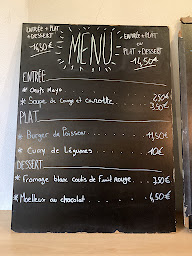 ENTRÉE + PLAT
+ DESSERT
16,50€
MENU
ENTRÉE + PLAT
ou
PLAT + DESSERT
14,50€
ENTRÉE
* Oeufs Mayo 2,50€
* Soupe de courge et carotte 3,50€
PLAT
* Burger du Poisson 11,50€
* Curry de Légumes 10€
DESSERT
* Fromage blanc coulis de Fruit rouge 3,50€
* Moelleux au chocolat 4,50€